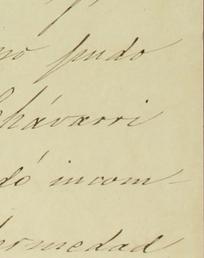 no pudo
chávarri
dó incom-
ermedad